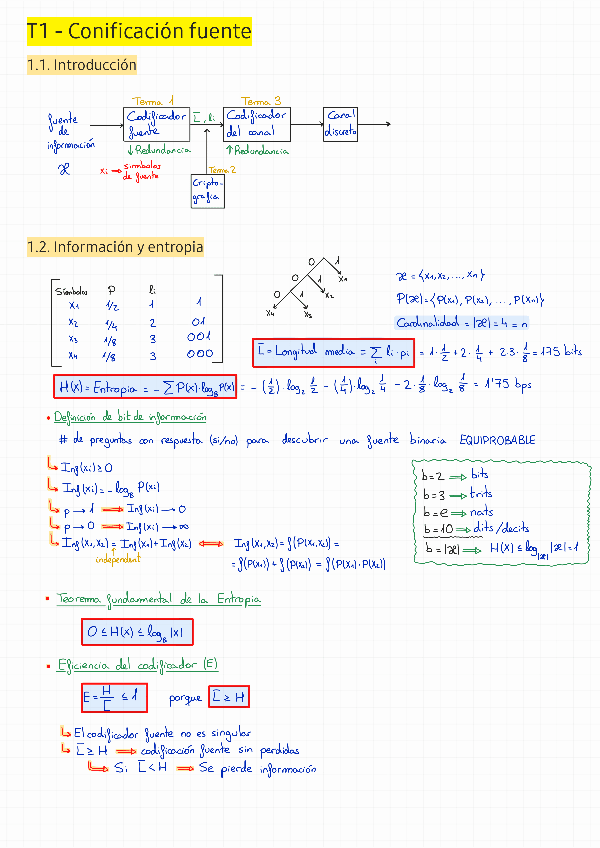 T1 - Conificación fuente
1.1. Introducción
fuente de información
X
Tema 1
Codificador fuente
↓ Redundancia
xi → simbolos de fuente
L̄, li
Tema 2
Criptografia
Tema 3
Codificador del canal
↑ Redundancia
Canal discreto
1.2. Información y entropia
Símbolos P li
x1 1/2 1 1
x2 1/4 2 01
x3 1/8 3 001
x4 1/8 3 000
0 1
0 1 x1
0 1 x2
x4 x3
x = {x1, x2, ..., xn}
P(x) = {P(x1), P(x2), ..., P(xn)}
Cardinalidad = |x| = 4 = n
L̄ = Longitud media = Σi li · pi = 1 · 1/2 + 2 · 1/4 + 2 · 3 · 1/8 = 1'75 bits
H(x) = Entropia = - Σ P(x) · logB P(x) = - (1/2) · log2 1/2 - (1/4) · log2 1/4 - 2 · 1/8 · log2 1/8 = 1'75 bps
• Definición de bit de información
# de preguntas con respuesta (si/no) para descubrir una fuente binaria EQUIPROBABLE
↳ Inf(xi) ≥ 0
↳ Inf(xi) = - logB P(xi)
↳ p → 1 ⟹ Inf(xi) → 0
↳ p → 0 ⟹ Inf(xi) → ∞
↳ Inf(x1, x2) = Inf(x1) + Inf(x2) ⟺ Inf(x1, x2) = f(P(x1, x2)) =
independent
= f(P(x1)) + f(P(x2)) = f(P(x1) · P(x2))
b = 2 ⟹ bits
b = 3 ⟹ trits
b = e ⟹ nats
b = 10 ⟹ dits/decits
b = |x| ⟹ H(x) ≤ log|x| |x| = 1
• Teorema fundamental de la Entropia
0 ≤ H(x) ≤ logB |x|
• Eficiencia del codificador (E)
E = H/L̄ ≤ 1 porque L̄ ≥ H
↳ El codificador fuente no es singular
↳ L̄ ≥ H ⟹ codificación fuente sin perdidas
↳ Si L̄ < H ⟹ Se pierde información